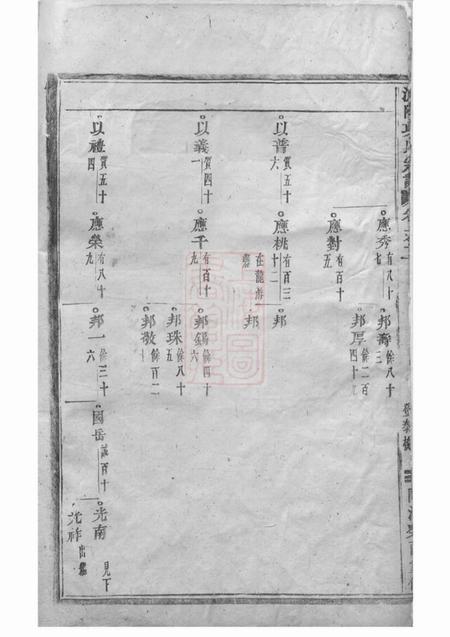 應秀 有八十七
邦壽 餘八十三
邦厚 餘二百四十
應對 有百十五
以普 質五十六
應桃 有百三十二
在龍游
邦
邦
以義 質四十一
應千 有百十九
邦錫 餘四十六
邦珠 餘八十五
邦敬 餘百二十
以禮 質五十四
應榮 有八十九
邦一 餘三十六
國岳 誠百十
光南 見下
光祚 出繼